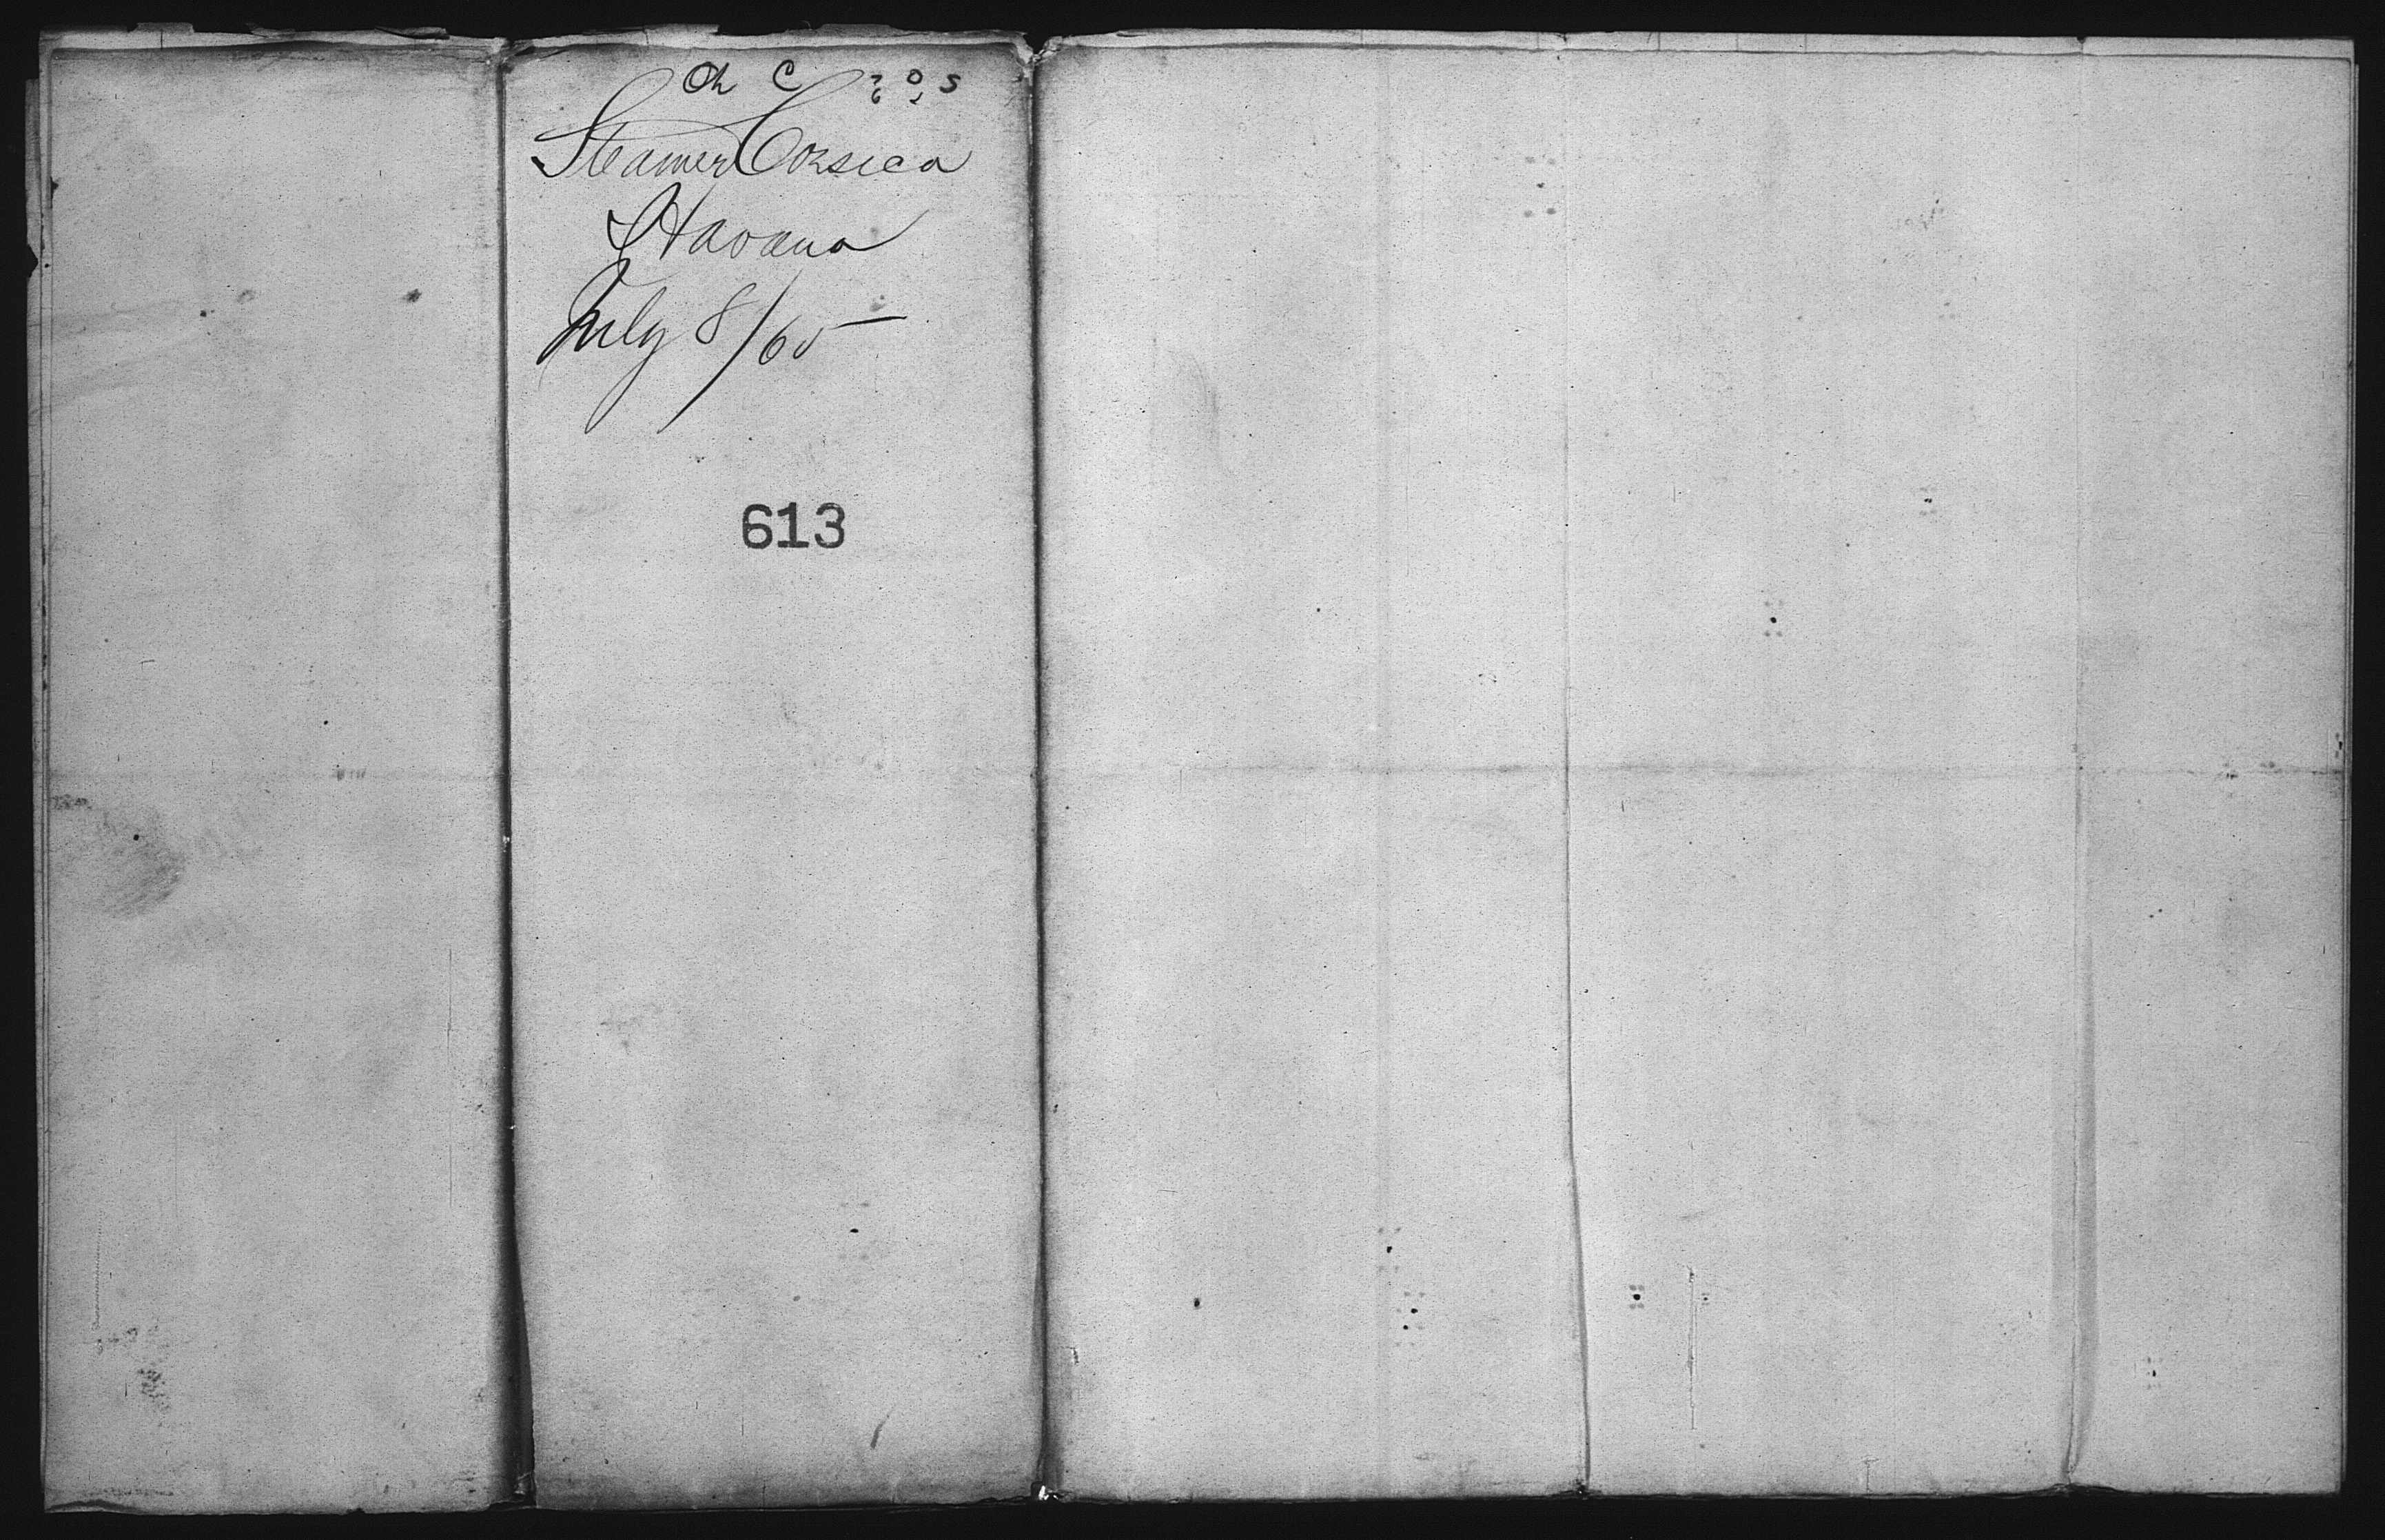 Ch C
Steamer Corsica
Havana
July 8/65
613